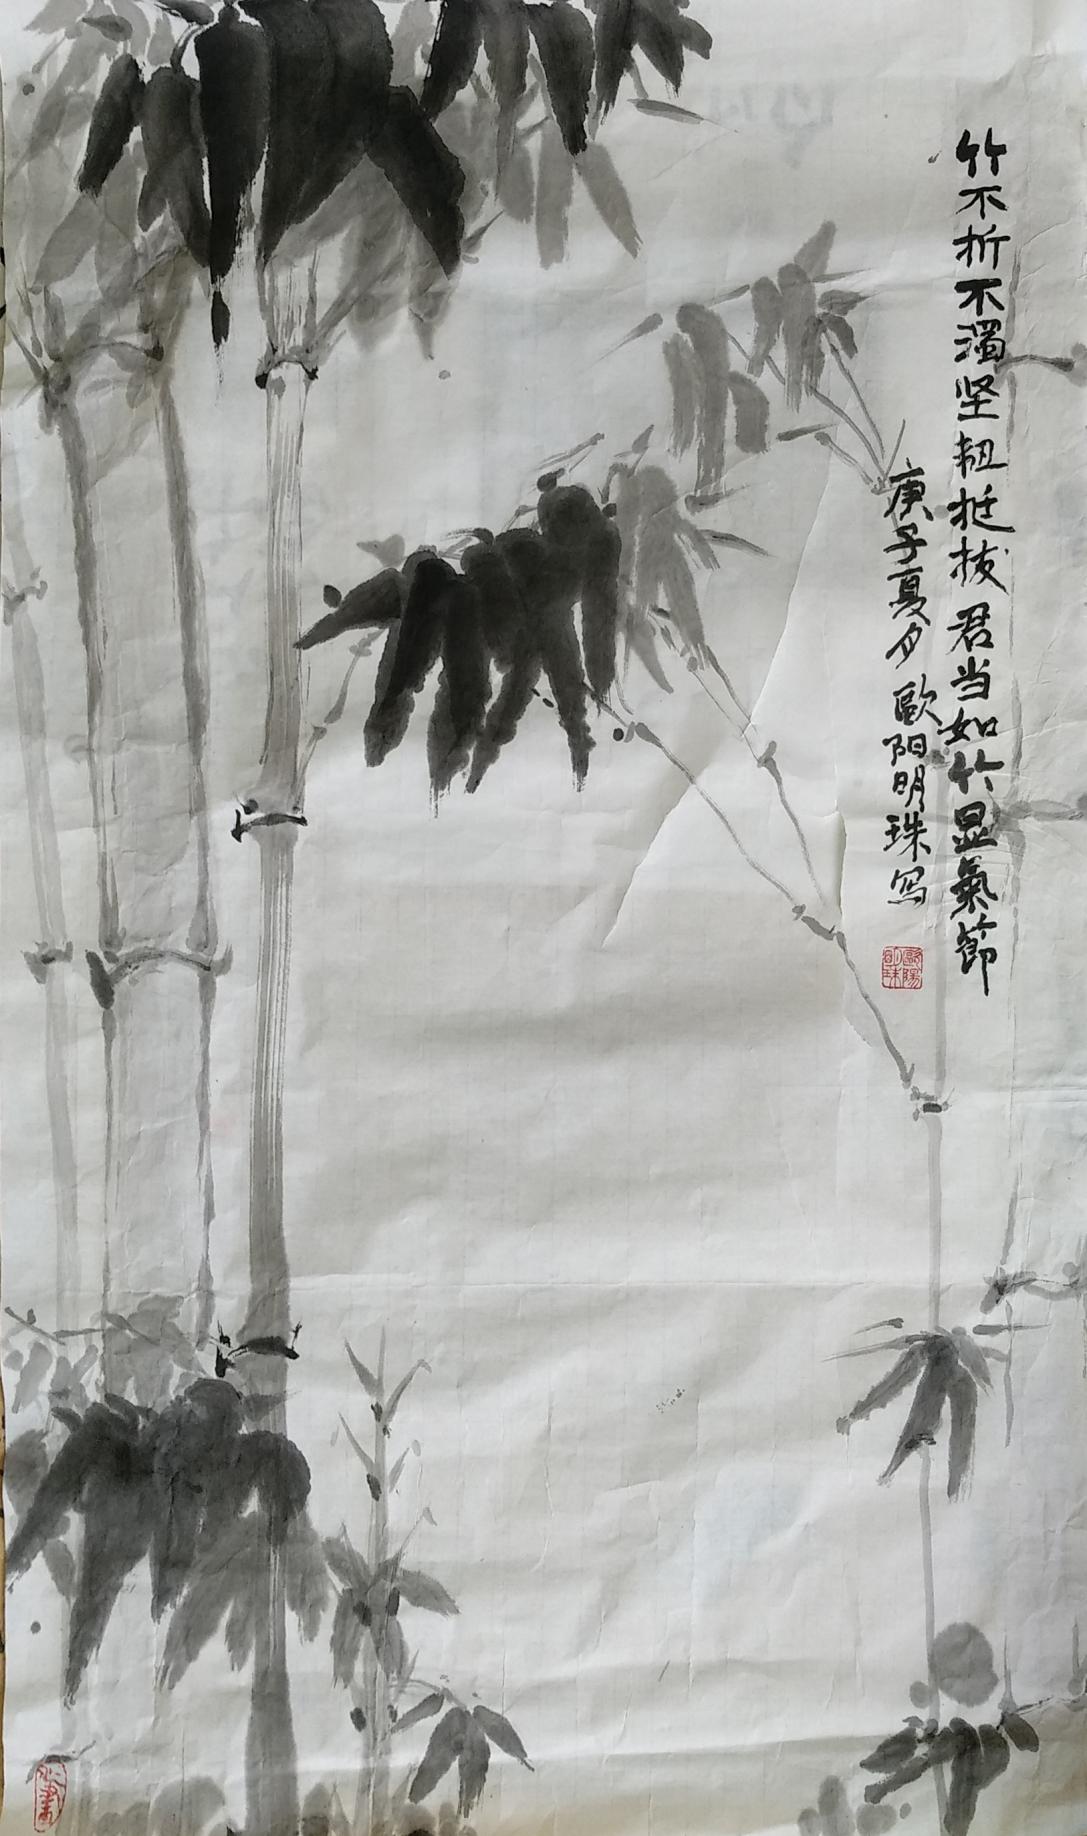 竹不折不濁坚韧挺拔君当如竹显氣節
庚子夏夕歐阳明珠写
歐陽明珠
心畫